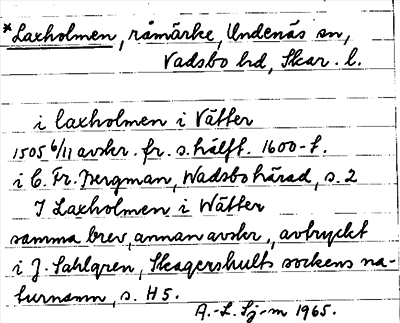 *Laxholmen, råmärke, Undenäs sn,
Vadsbo hd, Skar. l.
i laxholmen i Vätter
1505 6/11 avskr. fr. s. hälft. 1600-t.
i C. Fr. Bergman, Wadsbohärad, s. 2
I Laxholmen i Wätter
samma brev, annan avskr., avtryckt
i J. Sahlgren, Skagershults sockens na-
turnamn, s. H5.
A.-L. Sj-m 1965.